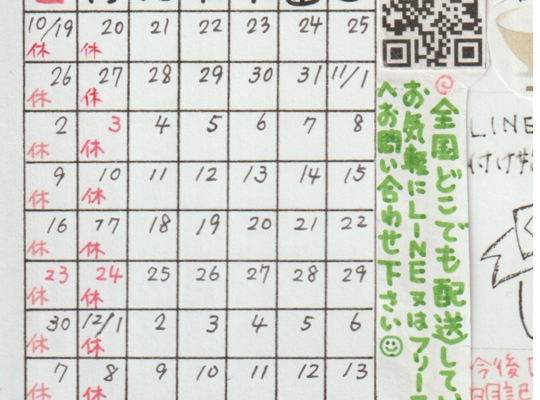 10/19 20 21 22 23 24 25
休 休
26 27 28 29 30 31 11/1
休 休
2 3 4 5 6 7 8
休 休
9 10 11 12 13 14 15
休 休
16 17 18 19 20 21 22
休 休
23 24 25 26 27 28 29
休 休
30 12/1 2 3 4 5 6
休 休
7 8 9 10 11 12 13
休 休
全国どこでも配送してい
お気軽にLINE又はフリー
へお問い合わせ下さい
LINE
今後
日記